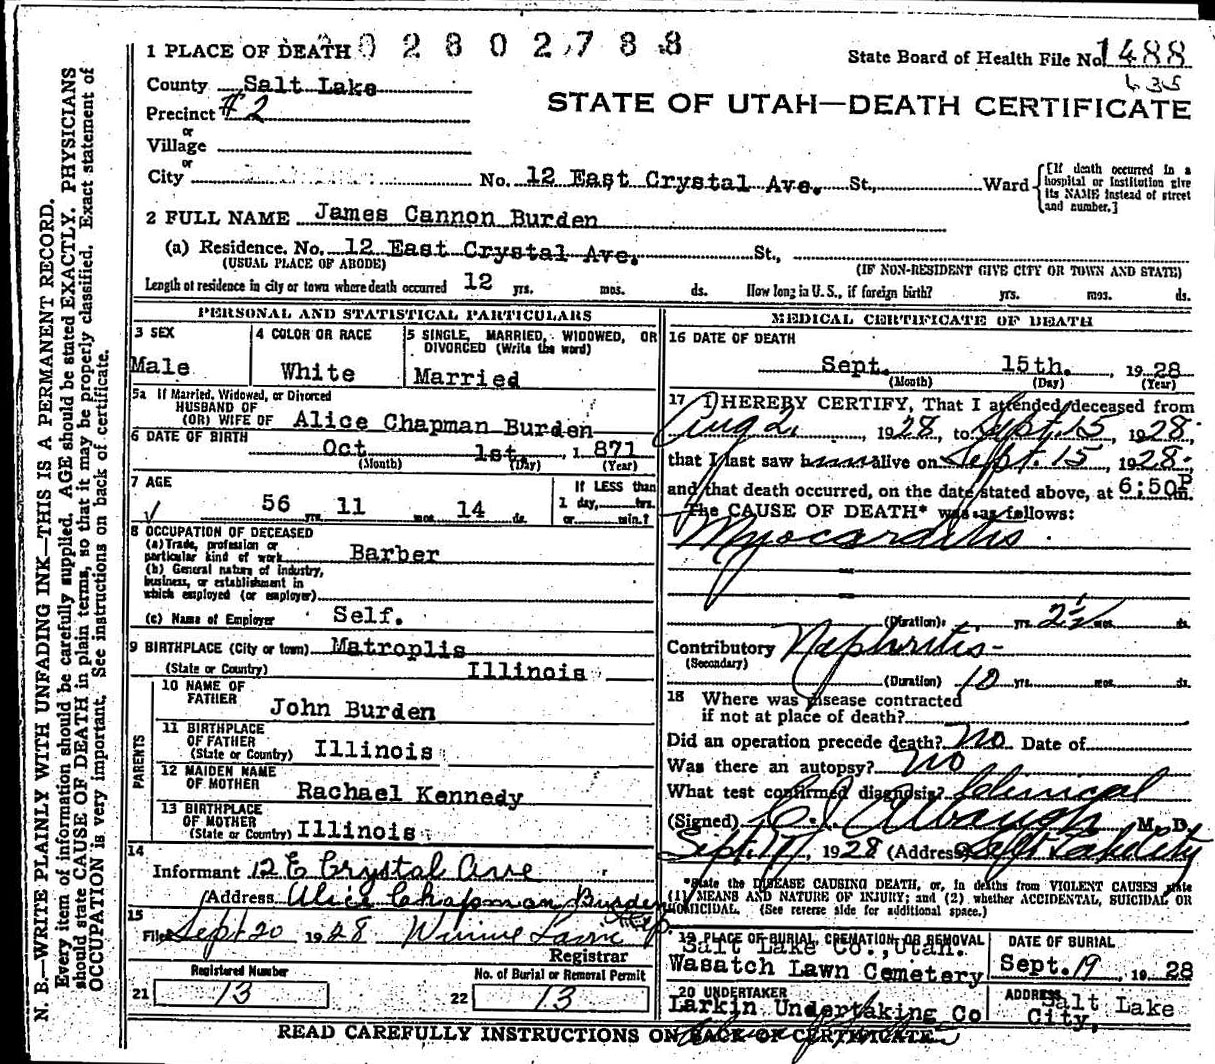 1 PLACE OF DEATH 0 0 2 8 0 2 7 8 8
State Board of Health File No. 1488
635
County Salt Lake
STATE OF UTAH—DEATH CERTIFICATE
Precinct #2
or
Village
or
City No. 12 East Crystal Ave. St., Ward
[If death occurred in a hospital or institution give its NAME instead of street and number.]
2 FULL NAME James Cannon Burden
(a) Residence. No. 12 East Crystal Ave. St.,
(USUAL PLACE OF ABODE) (IF NON-RESIDENT GIVE CITY OR TOWN AND STATE)
Length of residence in city or town where death occurred 12 yrs. mos. ds. How long in U. S., if foreign birth? yrs. mos. ds.
PERSONAL AND STATISTICAL PARTICULARS
3 SEX 4 COLOR OR RACE 5 SINGLE, MARRIED, WIDOWED, OR
DIVORCED (Write the word)
Male White Married
5a If Married, Widowed, or Divorced
HUSBAND OF
(OR) WIFE OF Alice Chapman Burden
6 DATE OF BIRTH Oct 1st, 1871
(Month) (Day) (Year)
7 AGE If LESS than
56 yrs. 11 mos. 14 ds. 1 day, hrs.
or min.?
8 OCCUPATION OF DECEASED
(a) Trade, profession or
particular kind of work Barber
(b) General nature of industry,
business, or establishment in
which employed (or employer)
(c) Name of Employer Self.
9 BIRTHPLACE (City or town) Matroplis
(State or Country) Illinois
PARENTS
10 NAME OF
FATHER John Burden
11 BIRTHPLACE
OF FATHER
(State or Country) Illinois
12 MAIDEN NAME
OF MOTHER Rachael Kennedy
13 BIRTHPLACE
OF MOTHER
(State or Country) Illinois
14
Informant 12 E Crystal Ave
Address Alice Chapman Burden
15
Filed Sept 20 1928 Winnie
Registrar
Registered Number No. of Burial or Removal Permit
21 13 22 13
MEDICAL CERTIFICATE OF DEATH
16 DATE OF DEATH
Sept. 15th. , 1928
(Month) (Day) (Year)
17 I HEREBY CERTIFY, That I attended deceased from
Aug 2, 1928, to Sept. 15, 1928,
that I last saw him alive on Sept. 15, 1928,
and that death occurred, on the date stated above, at 6:50P m.
The CAUSE OF DEATH* was as follows:
Myocarditis
(Duration) yrs. 2½ mos. ds.
Contributory Nephritis-
(Secondary)
(Duration) 10 yrs. mos. ds.
18 Where was disease contracted
if not at place of death?
Did an operation precede death? No Date of
Was there an autopsy? No
What test confirmed diagnosis? Clinical
(Signed) Albaugh M. D.
Sept. 17, 1928 (Address) Salt Lake City
*State the DISEASE CAUSING DEATH, or, in deaths from VIOLENT CAUSES state
(1) MEANS AND NATURE OF INJURY; and (2) whether ACCIDENTAL, SUICIDAL OR
HOMICIDAL. (See reverse side for additional space.)
19 PLACE OF BURIAL, CREMATION OR REMOVAL DATE OF BURIAL
Salt Lake Co., Utah.
Wasatch Lawn Cemetery Sept. 19, 1928
20 UNDERTAKER ADDRESS
Larkin Undertaking Co Salt Lake
City,
READ CAREFULLY INSTRUCTIONS ON BACK OF CERTIFICATE
N. B.—WRITE PLAINLY WITH UNFADING INK—THIS IS A PERMANENT RECORD.
Every item of information should be carefully supplied. AGE should be stated EXACTLY. PHYSICIANS
should state CAUSE OF DEATH in plain terms, so that it may be properly classified. Exact statement of
OCCUPATION is very important. See instructions on back of certificate.